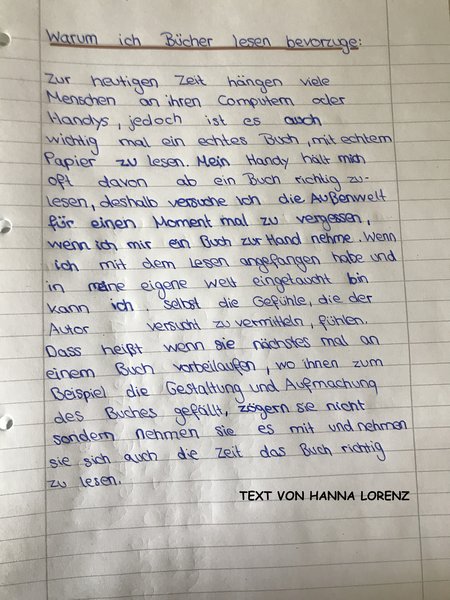 Warum ich Bücher lesen bevorzuge:
Zur heutigen Zeit hängen viele
Menschen an ihren Computern oder
Handys, jedoch ist es auch
wichtig mal ein echtes Buch, mit echtem
Papier zu lesen. Mein Handy hält mich
oft davon ab ein Buch richtig zu-
lesen, deshalb versuche ich die Außenwelt
für einen Moment mal zu vergessen,
wenn ich mir ein Buch zur Hand nehme. Wenn
ich mit dem Lesen angefangen habe und
in meine eigene Welt eingetaucht bin
kann ich selbst die Gefühle, die der
Autor versucht zu vermitteln, fühlen.
Dass heißt wenn sie nächstes mal an
einem Buch vorbeilaufen, wo ihnen zum
Beispiel die Gestaltung und Aufmachung
des Buches gefällt, zögern sie nicht
sondern nehmen sie es mit und nehmen
sie sich auch die Zeit das Buch richtig
zu lesen.
TEXT VON HANNA LORENZ